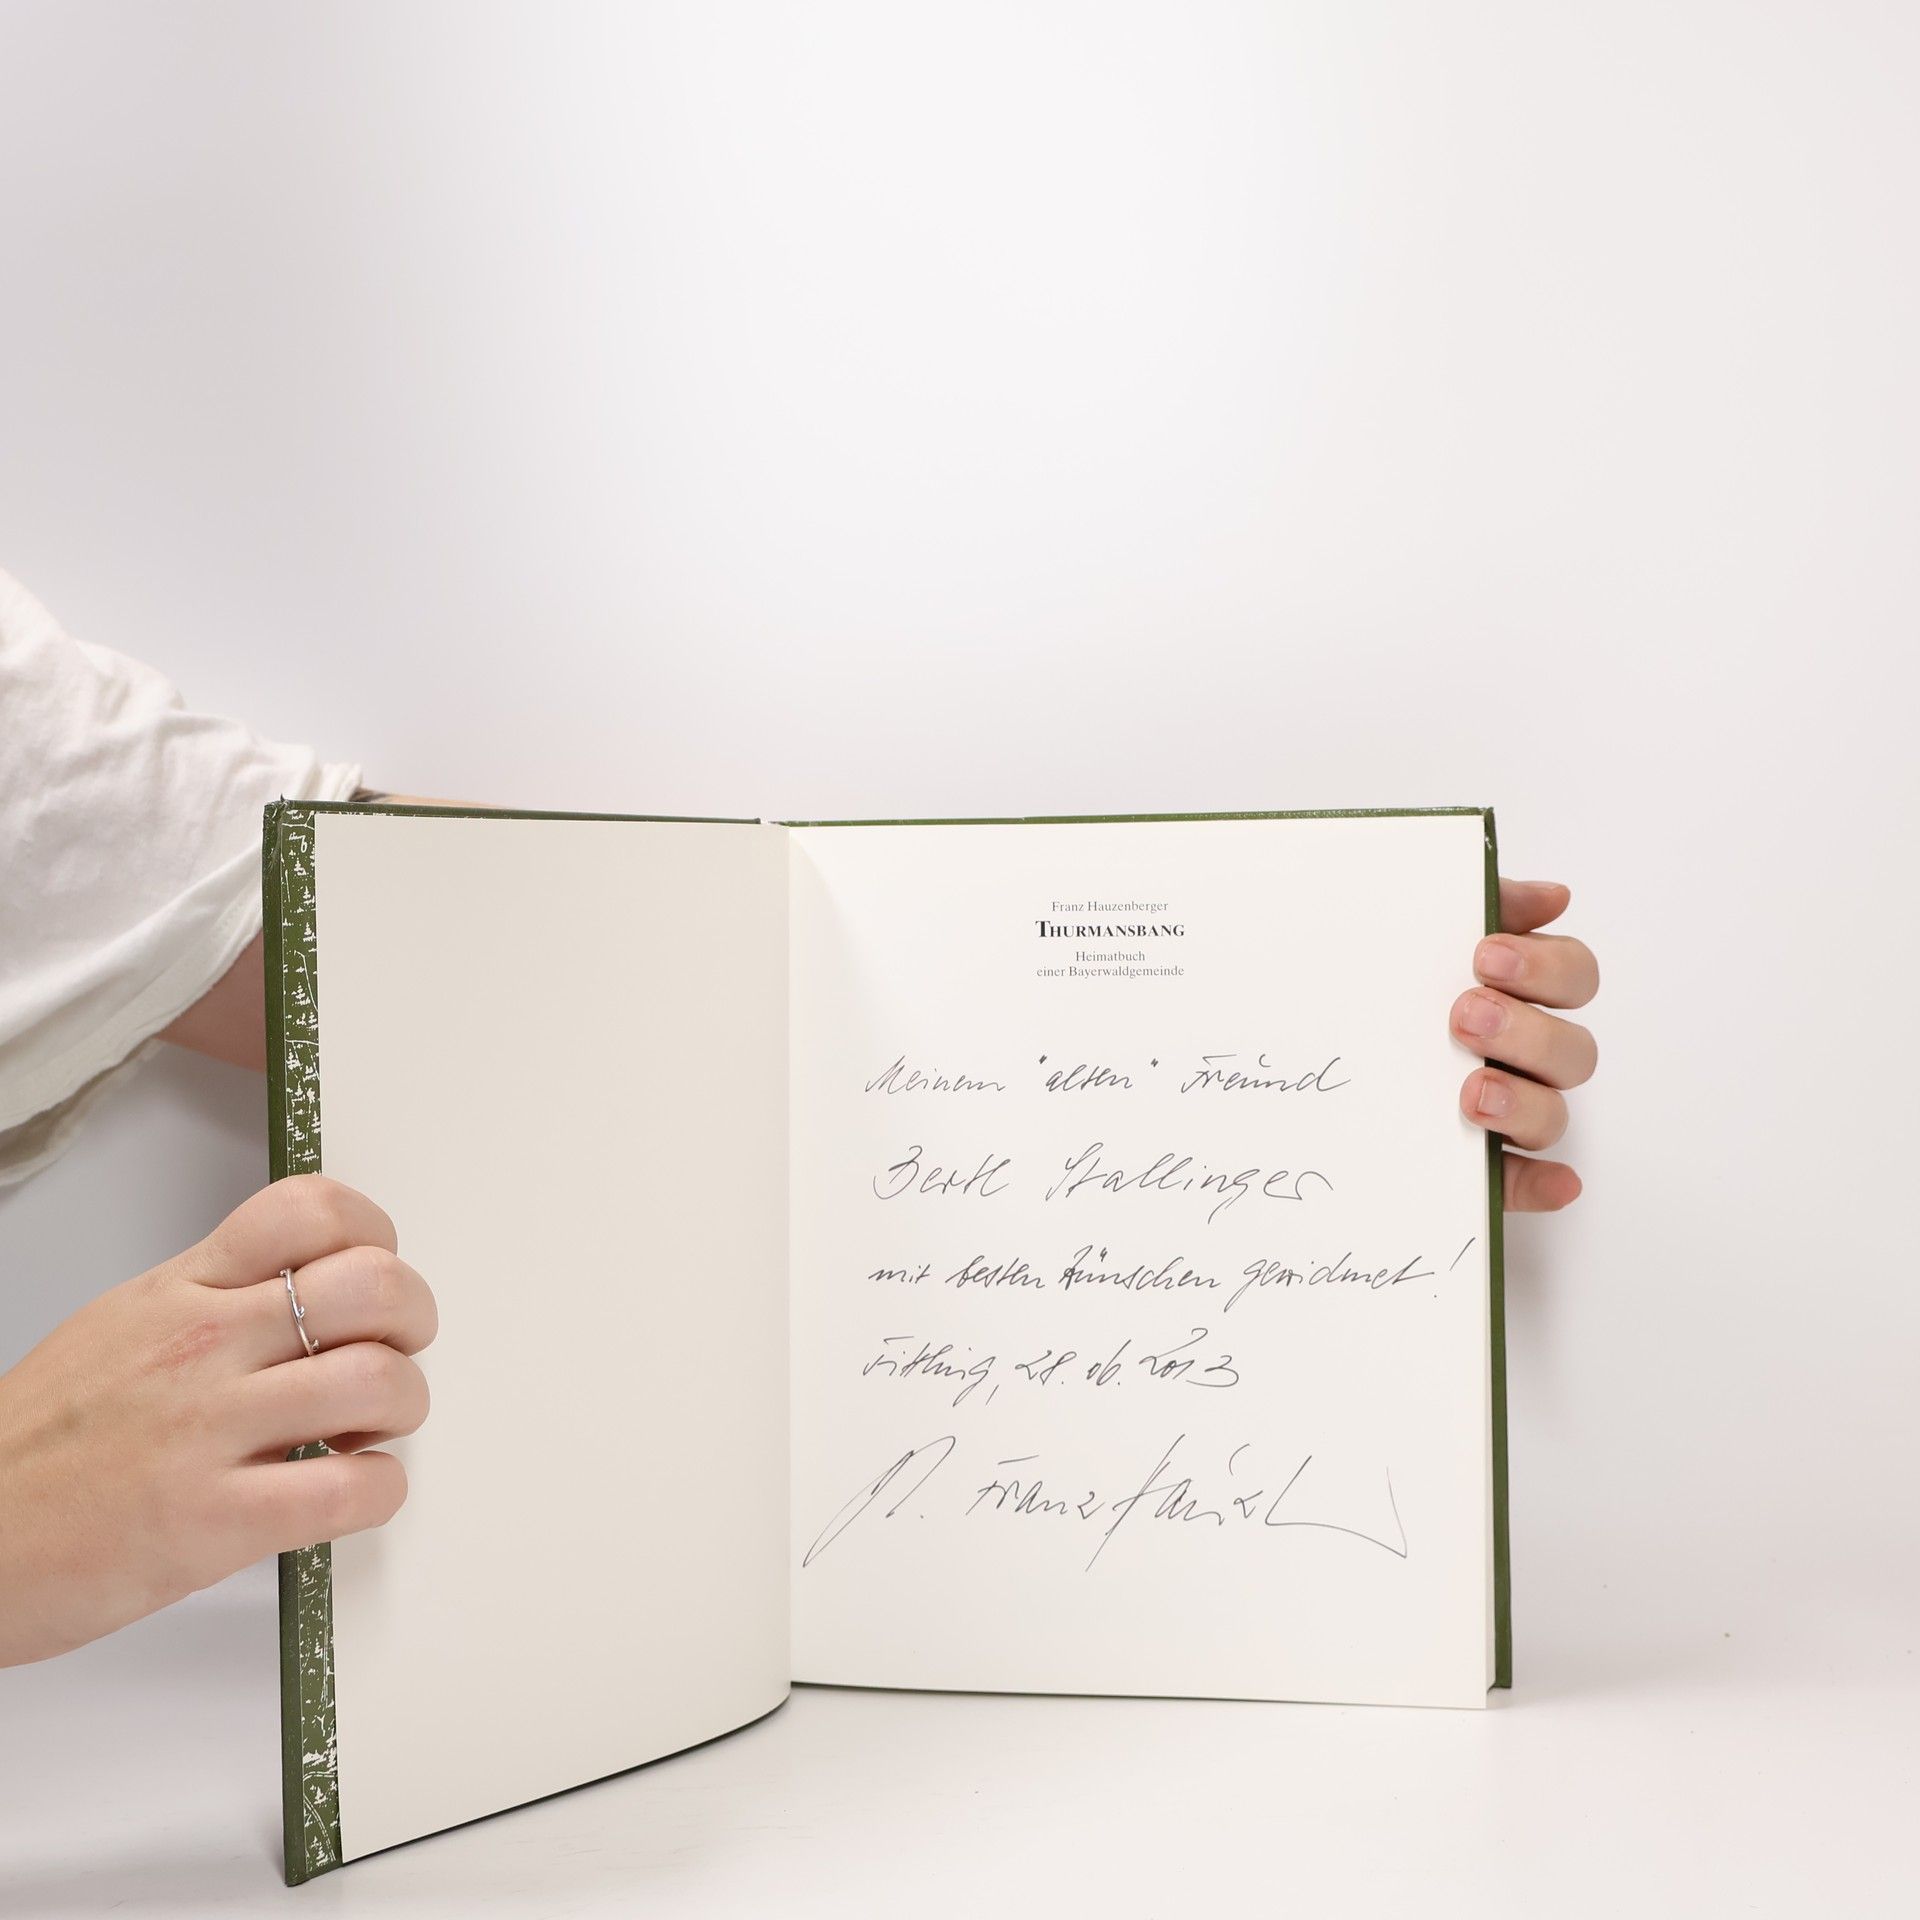 Franz Hauzenberger
THURMANSBANG
Heimatbuch
einer Bayerwaldgemeinde
Meinem "alten" Freund
Bertl Stallinger
mit besten Wünschen gewidmet!
Fittling, 28.06.2013
Franz